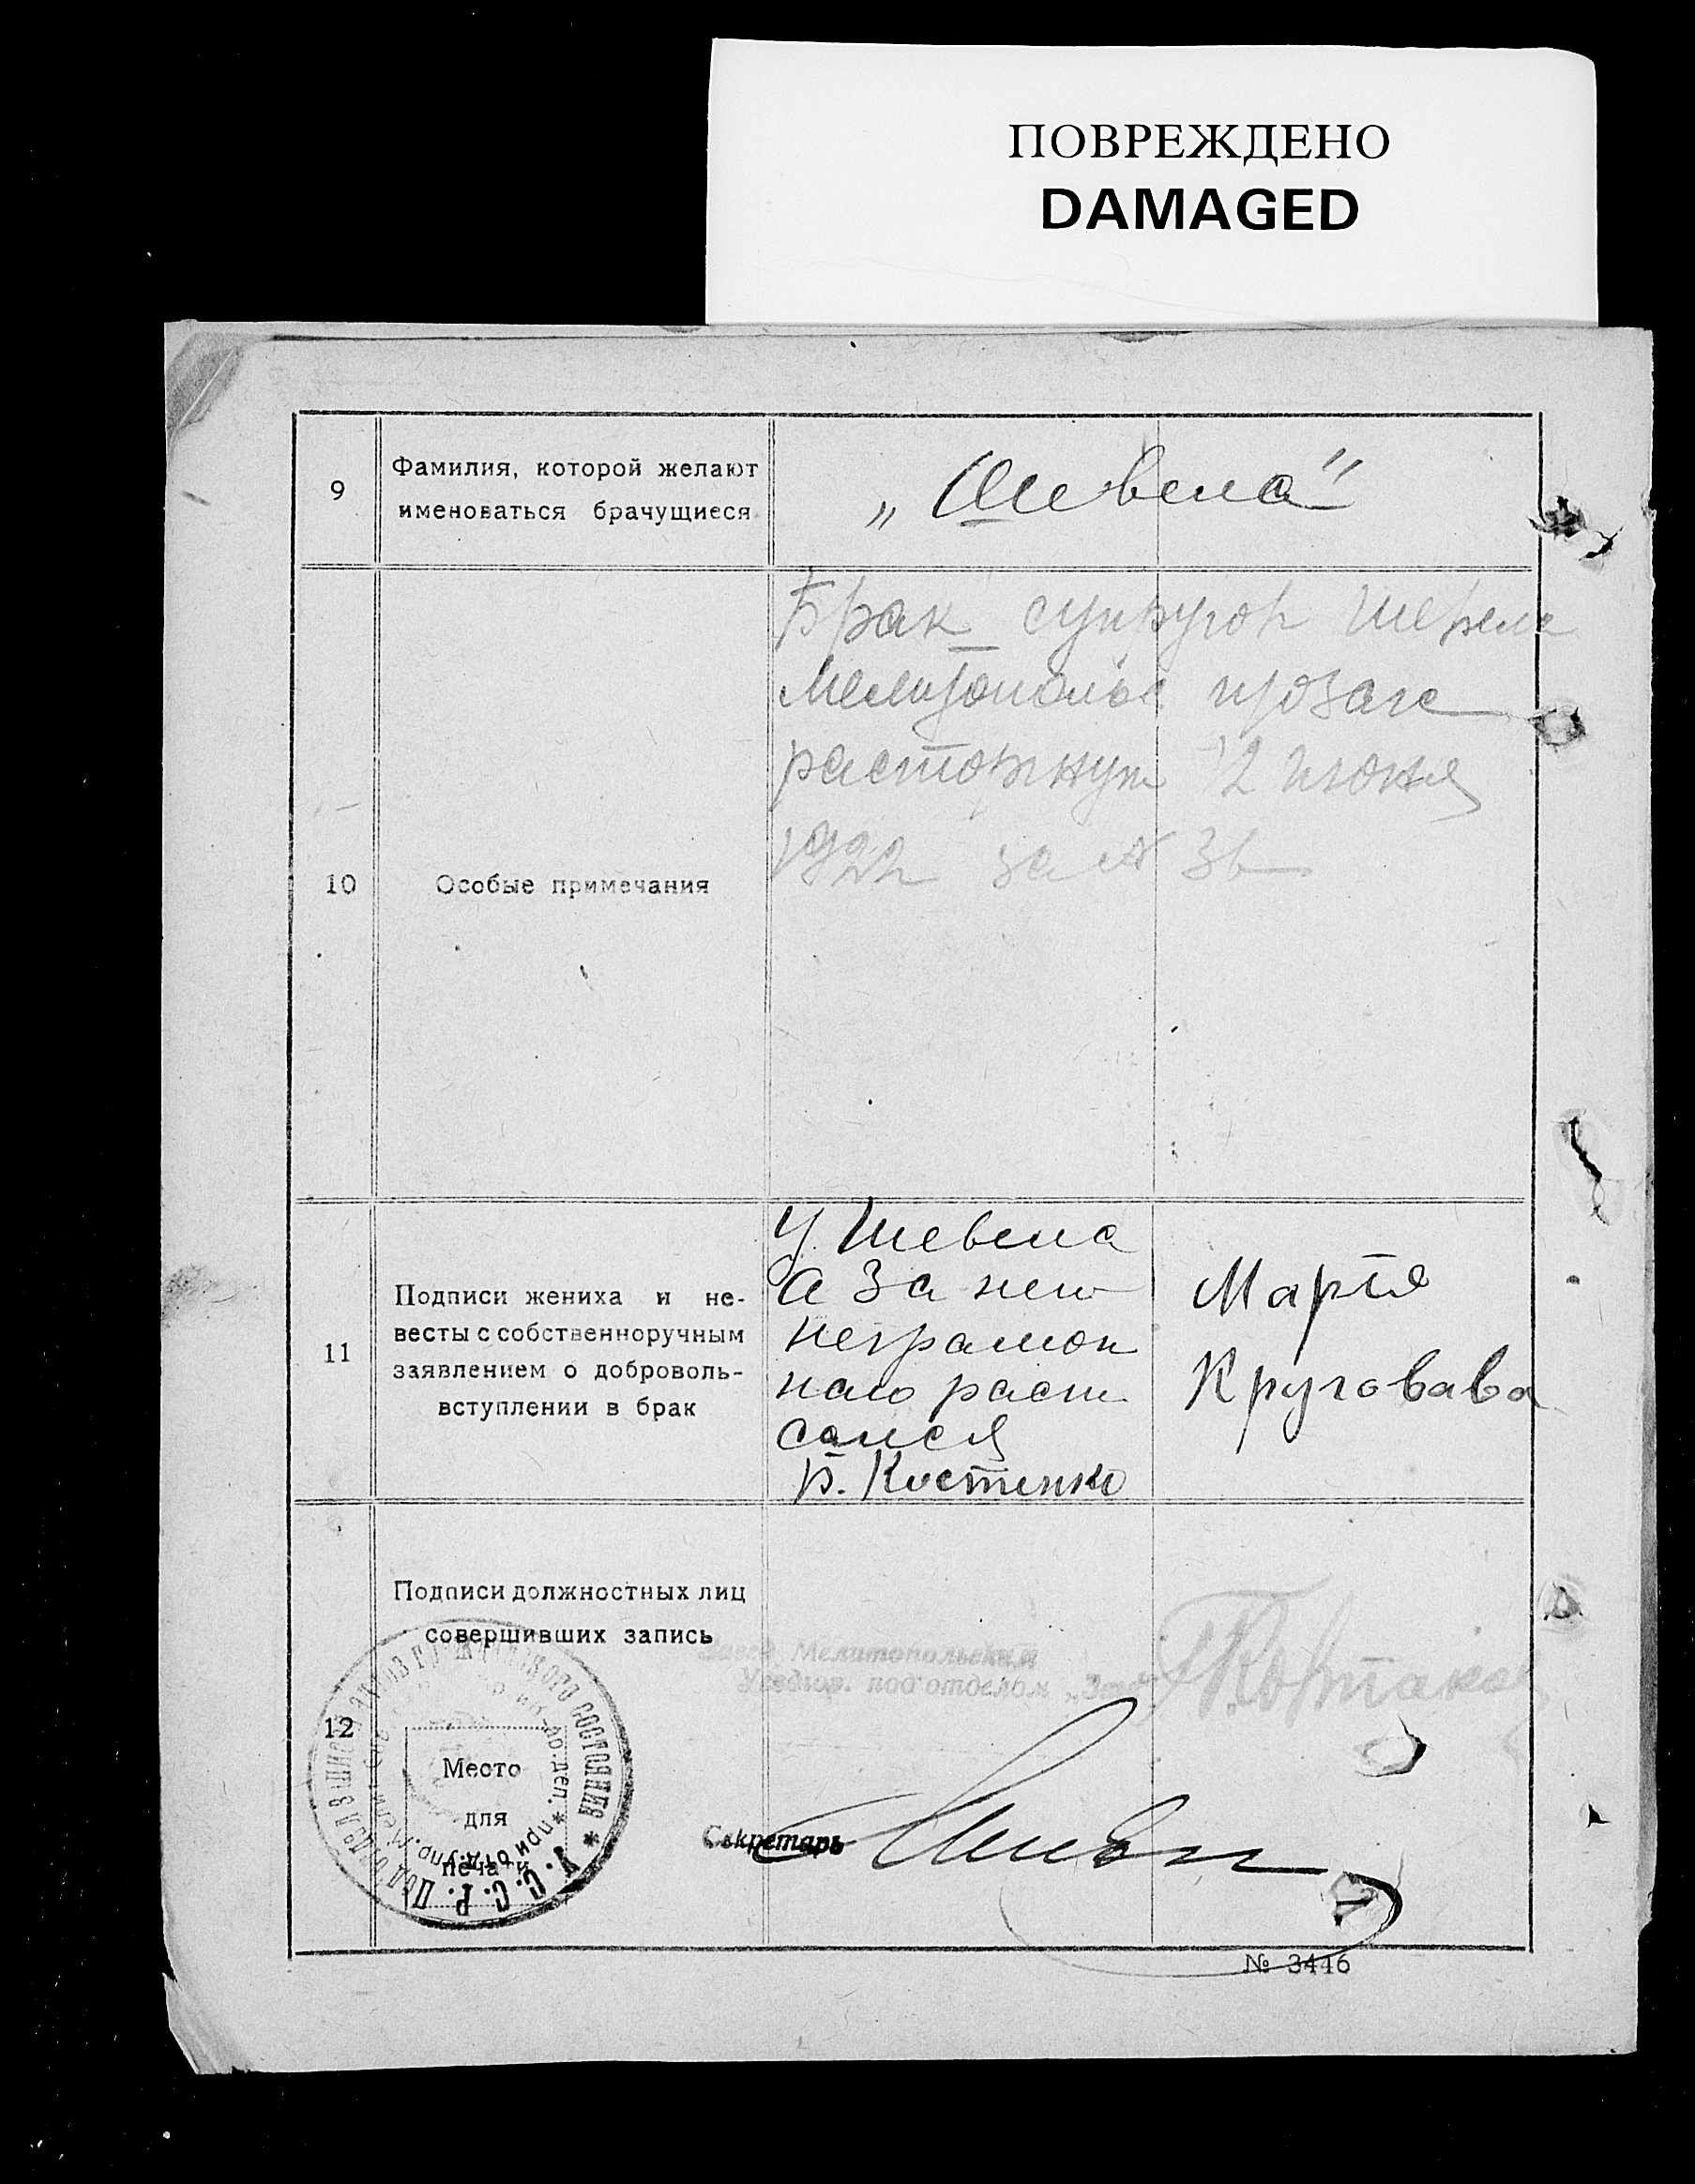 ПОВРЕЖДЕНО
DAMAGED
9
Фамилия, которой желают
именоваться брачущиеся
„Шевела"
10
Особые примечания
Брак супругов Шевела
Мелитопольс
расторжнут 12 июня
1922 за № 36
11
Подписи жениха и не-
весты с собственноручным
заявлением о доброволь-
вступлении в брак
У Шевела
а За него
неграмот
наго распи
сался
В. Костенко
Мария
Круговава
12
Подписи должностных лиц
совершивших запись
Завед. Мелитопольским
Уездног. подотделом „Загс"
Секретарь
Место
для
печати
У. С. С. Р. Подотдел записи актов гражданского состояния
№ 3446